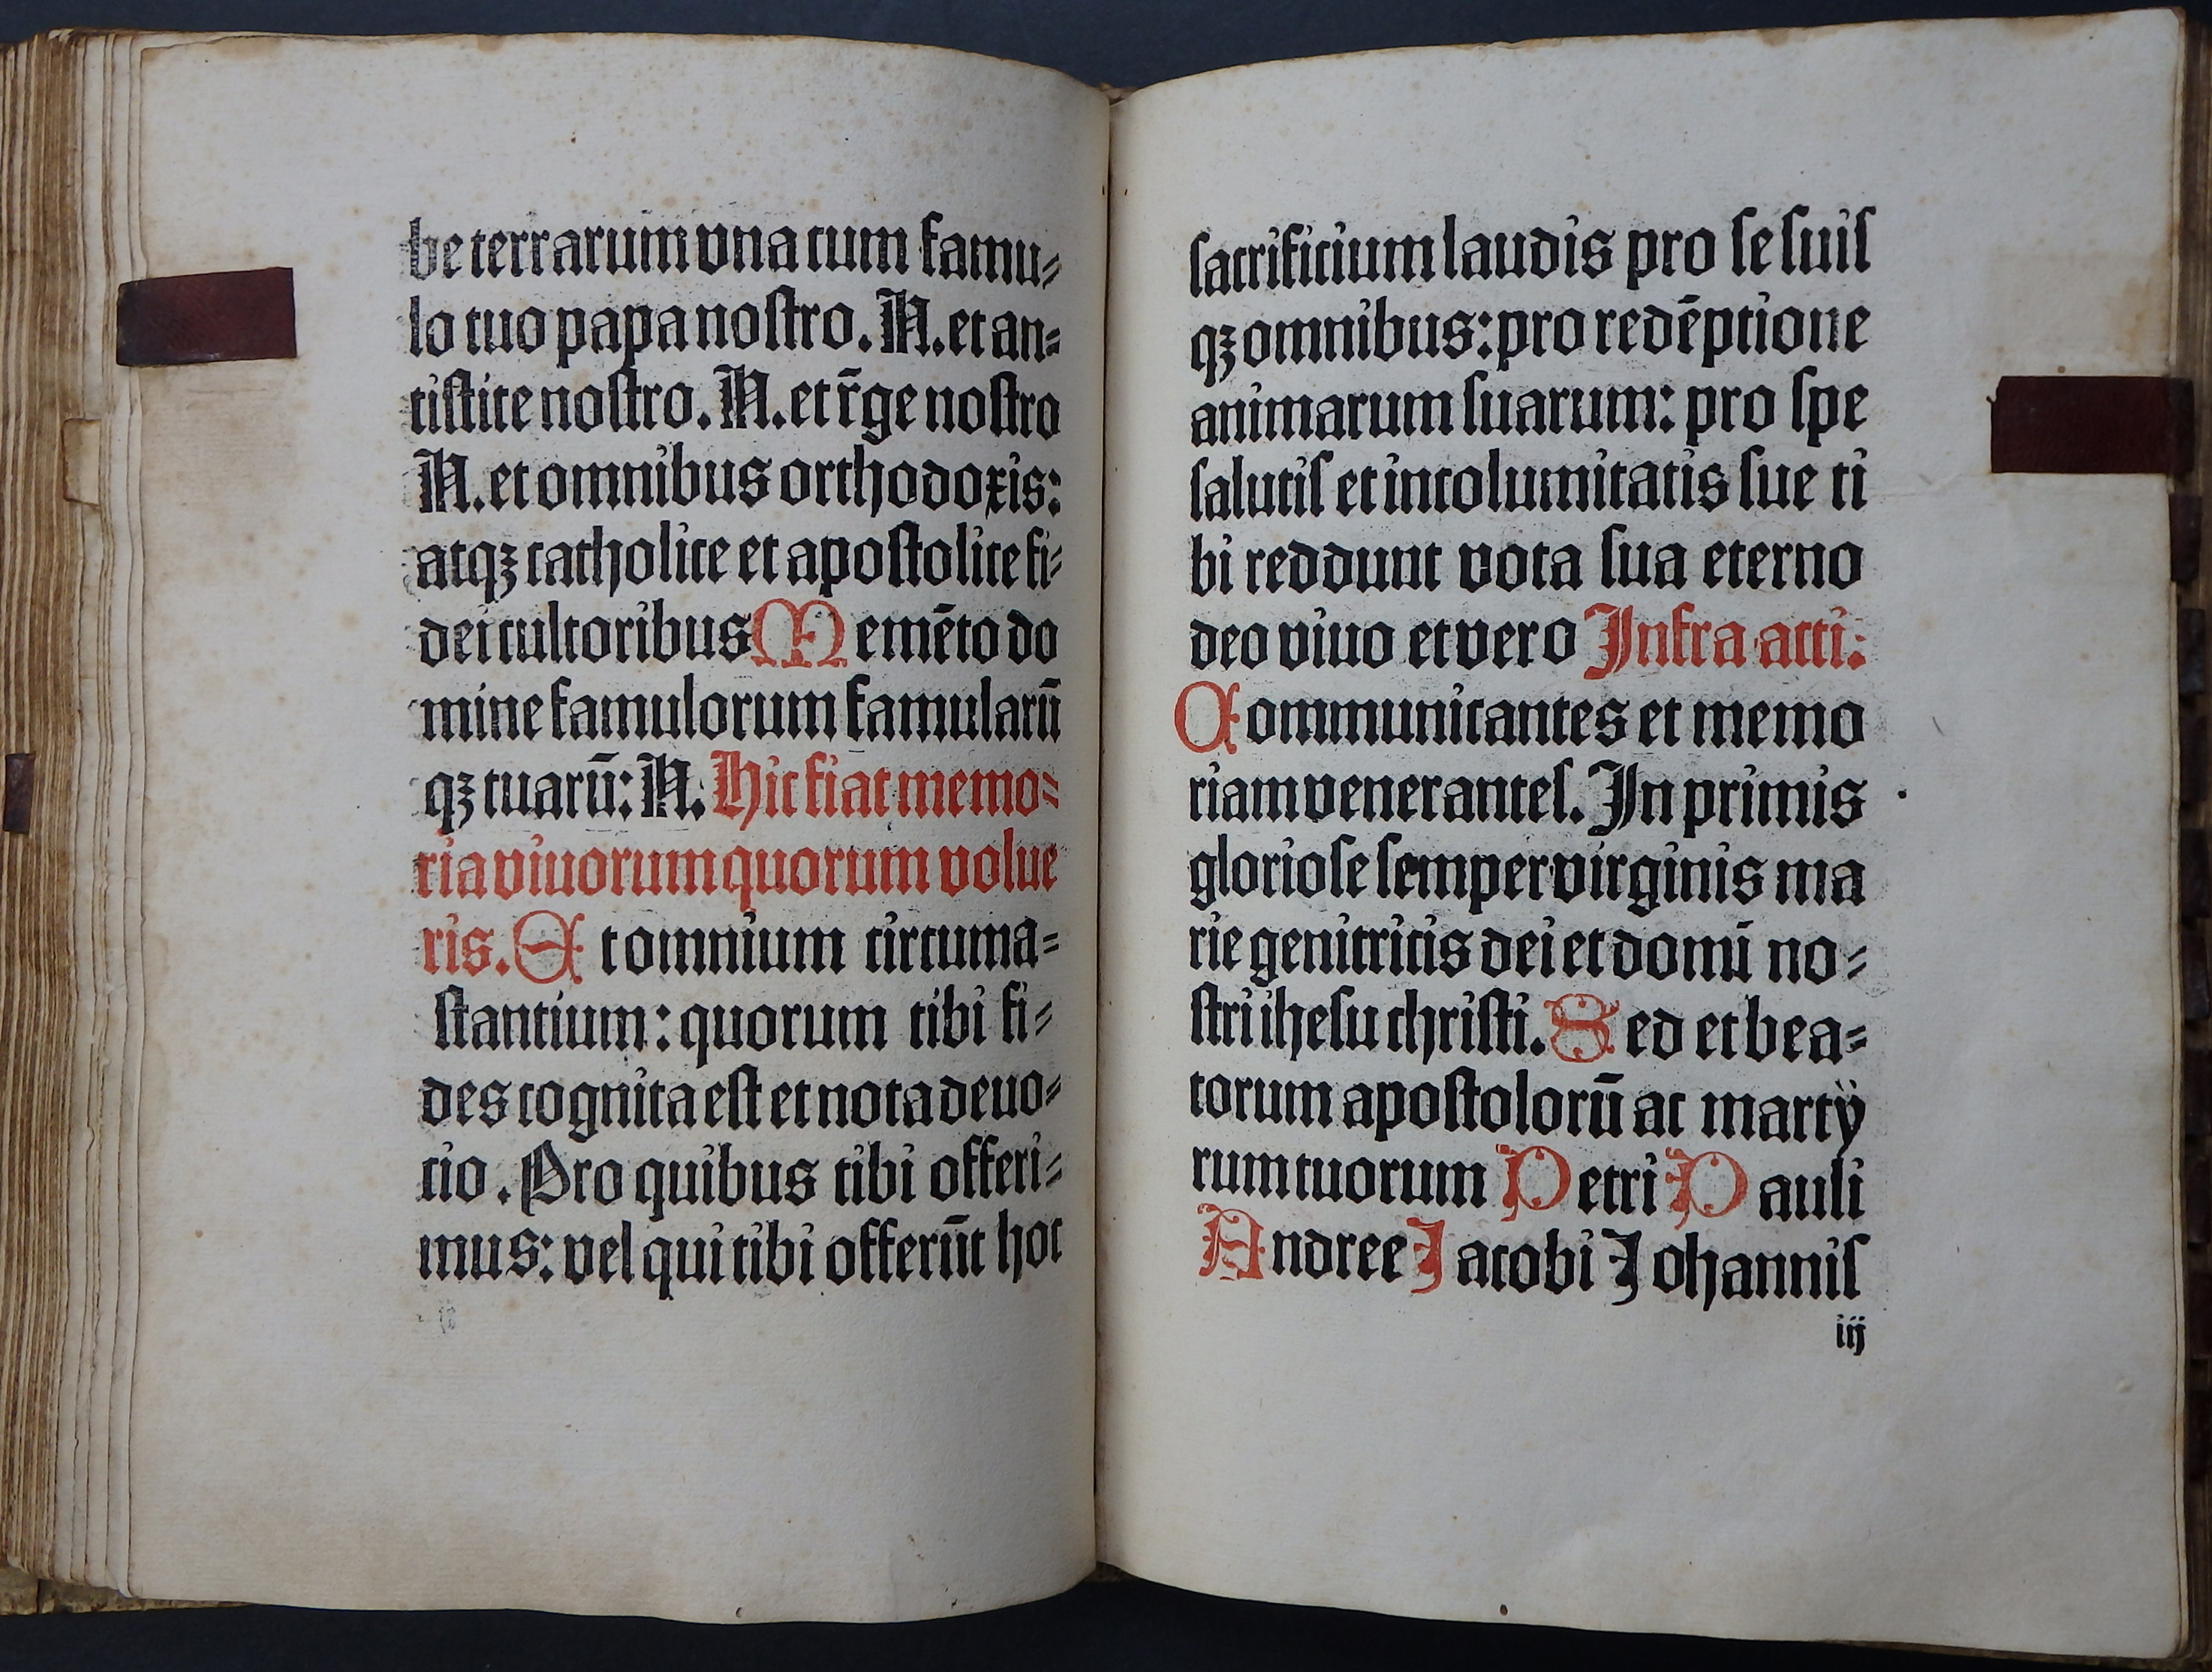 be terrarum vna cum famu⸗
lo tuo papa nostro. N. et an⸗
tistite nostro. N. et r̄ge nostro
N. et omnibus orthodoxis:
atqꝫ catholice et apostolice fi⸗
dei cultoribus Memēto do
mine famulorum famularū
qꝫ tuarū: N. Hic fiat memo⸗
ria viuorum quorum volue
ris. Et omnium circuma⸗
stantium: quorum tibi fi⸗
des cognita est et nota deuo⸗
tio. Pro quibus tibi offeri⸗
mus: vel qui tibi offerūt hoc
sacrificium laudis pro se suis
qꝫ omnibus: pro redēptione
animarum suarum: pro spe
salutis et incolumitatis sue ti
bi reddunt vota sua eterno
deo viuo et vero Infra acti:
Communicantes et memo
riam venerantes. In primis
gloriose semper virginis ma
rie genitricis dei et domī no⸗
stri ihesu christi. Sed et bea⸗
torum apostolorū ac martÿ
rum tuorum Petri Pauli
Andree Jacobi Johannis
iij